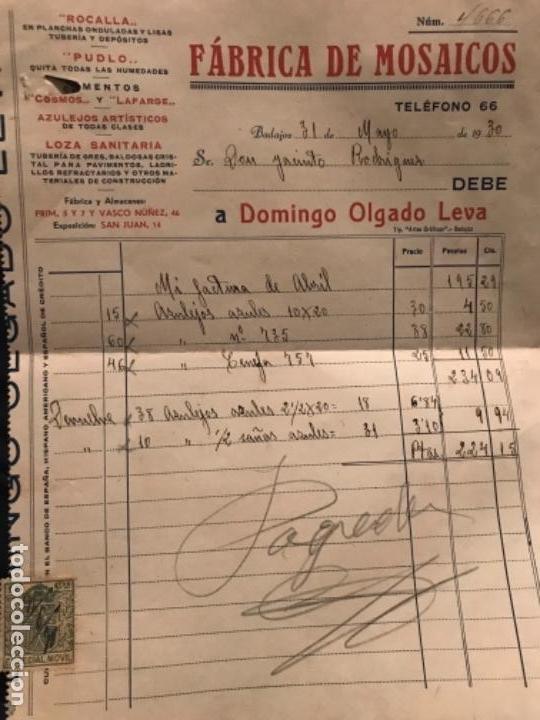 "ROCALLA"
EN PLANCHAS ONDULADAS Y LISAS
TUBERÍA Y DEPÓSITOS
"PUDLO"
QUITA TODAS LAS HUMEDADES
MENTOS
"COSMOS" Y "LAFARGE"
AZULEJOS ARTÍSTICOS
DE TODAS CLASES
LOZA SANITARIA
TUBERÍA DE GRES, BALDOSAS CRIS-
TAL PARA PAVIMENTOS, LADRI-
LLOS REFRACTARIOS Y OTROS MA-
TERIALES DE CONSTRUCCIÓN
Fábrica y Almacenes:
PRIM, 5 Y 7 Y VASCO NÚÑEZ, 46
Exposición: SAN JUAN, 14
Núm. 1/666
FÁBRICA DE MOSAICOS
TELÉFONO 66
Badajoz 31 de Mayo de 1930
Sr. Don Jacinto Rodríguez
DEBE
a Domingo Olgado Leva
Tip. "Artes Gráficas".- Badajoz
Precio Pesetas Cts.
Mi factura de Abril 195 29
15 Azulejos azules 10x20 30 4 50
60 " nº 735 38 22 80
46 " Cenefa 757 25 11 50
234 09
38 Azulejos azules 2½x20= 18 6'84
" 10 " 1/2 cañas azules= 31 3'10 9 94
Ptas 224 15
Pagada
EN EL BANCO DE ESPAÑA, HISPANO AMERICANO Y ESPAÑOL DE CRÉDITO
todocoleccion